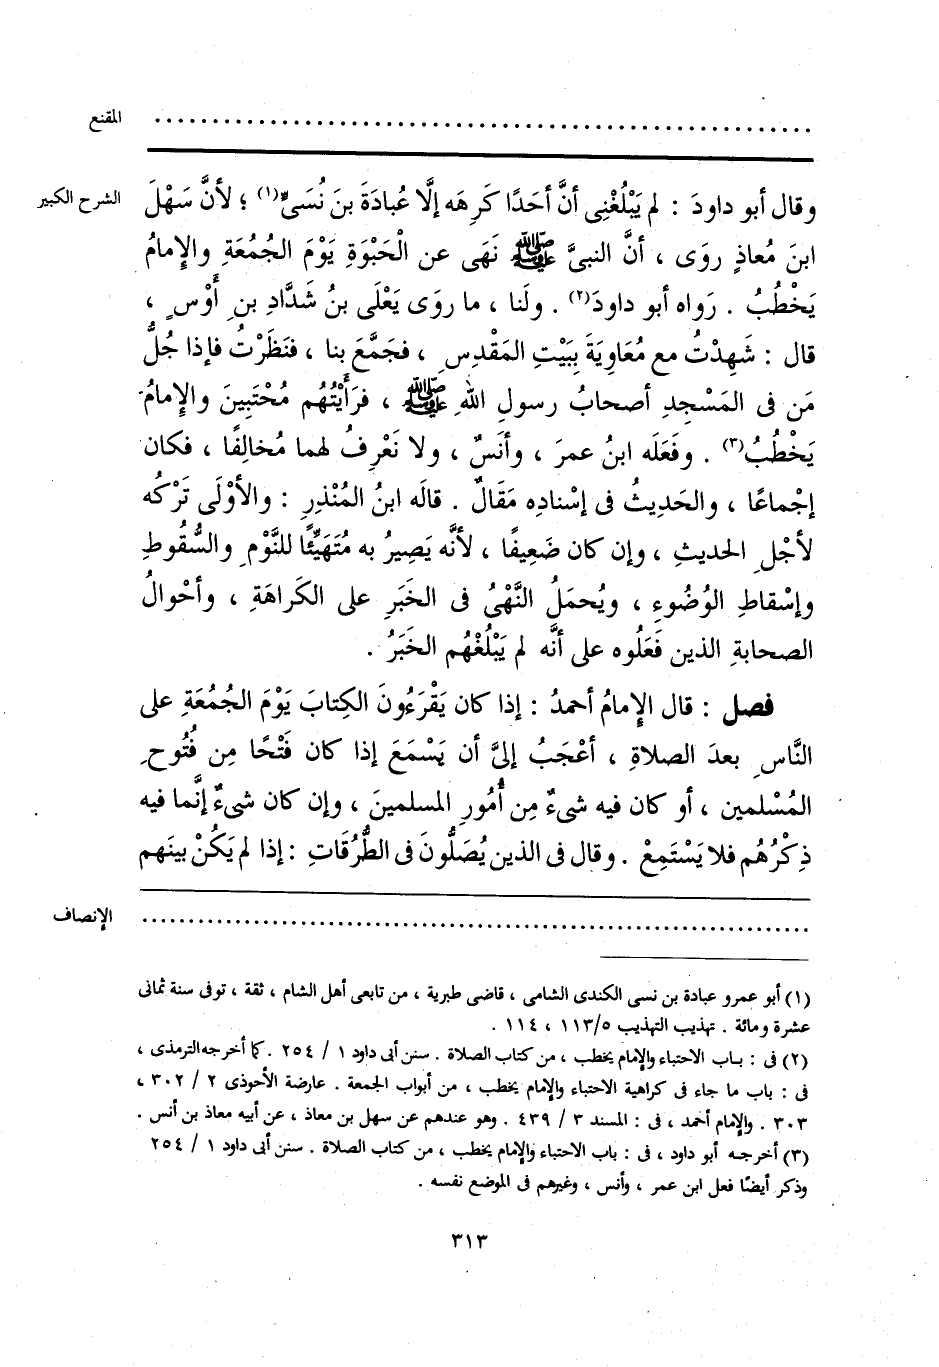 المقنع ............................................................
الشرح الكبير وقال أبو داودَ : لم يَبْلُغْنِى أنَّ أحَدًا كَرِهَه إلَّا عُبادَةَ بنَ نُسَىٍّ(١) ؛ لأنَّ سَهْلَ
ابنَ مُعاذٍ روَى ، أنَّ النبىَّ ﷺ نَهَى عن الْحَبْوَةِ يَوْمَ الجُمُعَةِ والإِمامُ
يَخْطُبُ . رَواه أبو داودَ(٢) . ولَنا ، ما روَى يَعْلَى بنُ شَدَّادِ بنِ أَوْسٍ ،
قال : شَهِدْتُ مع مُعَاوِيَةَ بِبَيْتِ المَقْدِسِ ، فجَمَّعَ بنا ، فنَظَرْتُ فإذا جُلُّ
مَن فى المَسْجِدِ أصحابُ رسولِ اللهِ ﷺ ، فرَأَيْتُهُم مُحْتَبِينَ والإِمامُ
يَخْطُبُ(٣) . وفَعَلَه ابنُ عمرَ ، وأنَسٌ ، ولا نَعْرِفُ لهما مُخالِفًا ، فكان
إجْماعًا ، والحَدِيثُ فى إسْنادِه مَقَالٌ . قالَه ابنُ المُنْذِرِ : والأَوْلَى تَرْكُه
لأجْلِ الحديثِ ، وإن كان ضَعِيفًا ، لأنَّه يَصِيرُ به مُتَهَيِّئًا للنَّوْمِ والسُّقُوطِ
وإسْقاطِ الوُضُوءِ ، ويُحمَلُ النَّهْىُ فى الخَبَرِ على الكَراهَةِ ، وأحْوالُ
الصحابةِ الذين فَعَلُوه على أنَّه لم يَبْلُغْهُم الخَبَرُ .
فصل : قال الإِمامُ أحمدُ : إذا كان يَقْرَءُونَ الكِتابَ يَوْمَ الجُمُعَةِ على
النَّاسِ بعدَ الصلاةِ ، أعْجَبُ إلىَّ أن يَسْمَعَ إذا كان فَتْحًا مِن فُتُوحِ
المُسْلمين ، أو كان فيه شىءٌ مِن أُمُورِ المسلمينَ ، وإن كان شىءٌ إنَّما فيه
ذِكْرُهُم فلا يَسْتَمِعْ . وقال فى الذين يُصَلُّونَ فى الطُّرُقَاتِ : إذا لم يَكُنْ بينَهم
الإنصاف ............................................................
(١) أبو عمرو عبادة بن نسى الكندى الشامى ، قاضى طبرية ، من تابعى أهل الشام ، ثقة ، توفى سنة ثمانى
عشرة ومائة . تهذيب التهذيب ٥/١١٣ ، ١١٤ .
(٢) فى : باب الاحتباء والإمام يخطب ، من كتاب الصلاة . سنن أبى داود ١ / ٢٥٤ . كما أخرجه الترمذى ،
فى : باب ما جاء فى كراهية الاحتباء والإمام يخطب ، من أبواب الجمعة . عارضة الأحوذى ٢ / ٣٠٢ ،
٣٠٣ . والإمام أحمد ، فى : المسند ٣ / ٤٣٩ . وهو عندهم عن سهل بن معاذ ، عن أبيه معاذ بن أنس .
(٣) أخرجه أبو داود ، فى : باب الاحتباء والإمام يخطب ، من كتاب الصلاة . سنن أبى داود ١ / ٢٥٤
وذكر أيضًا فعل ابن عمر ، وأنس ، وغيرهم فى الموضع نفسه .
٣١٣